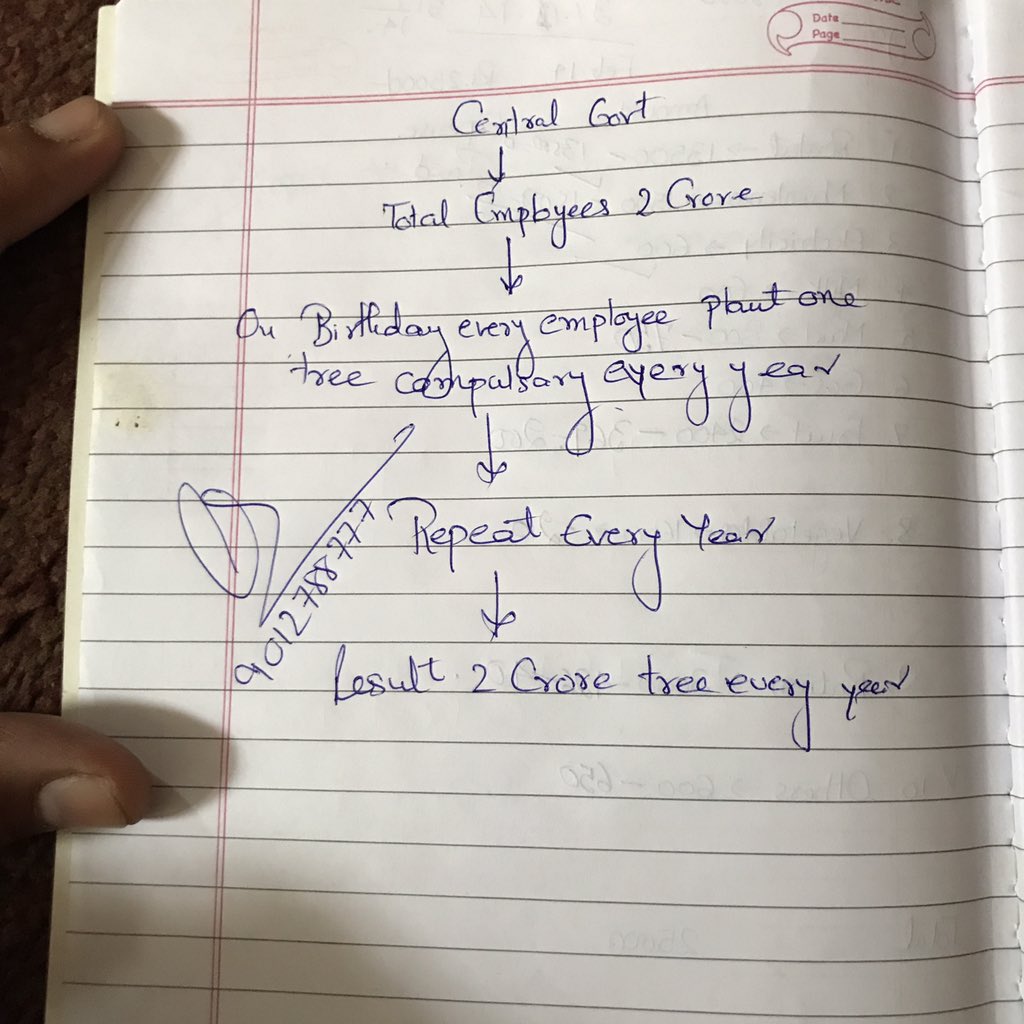 Date
Page
Central Govt
Total Employees 2 Crore
On Birthday every employee plant one
tree compulsary every year
Repeat Every Year
9012788777
Result 2 Crore tree every year